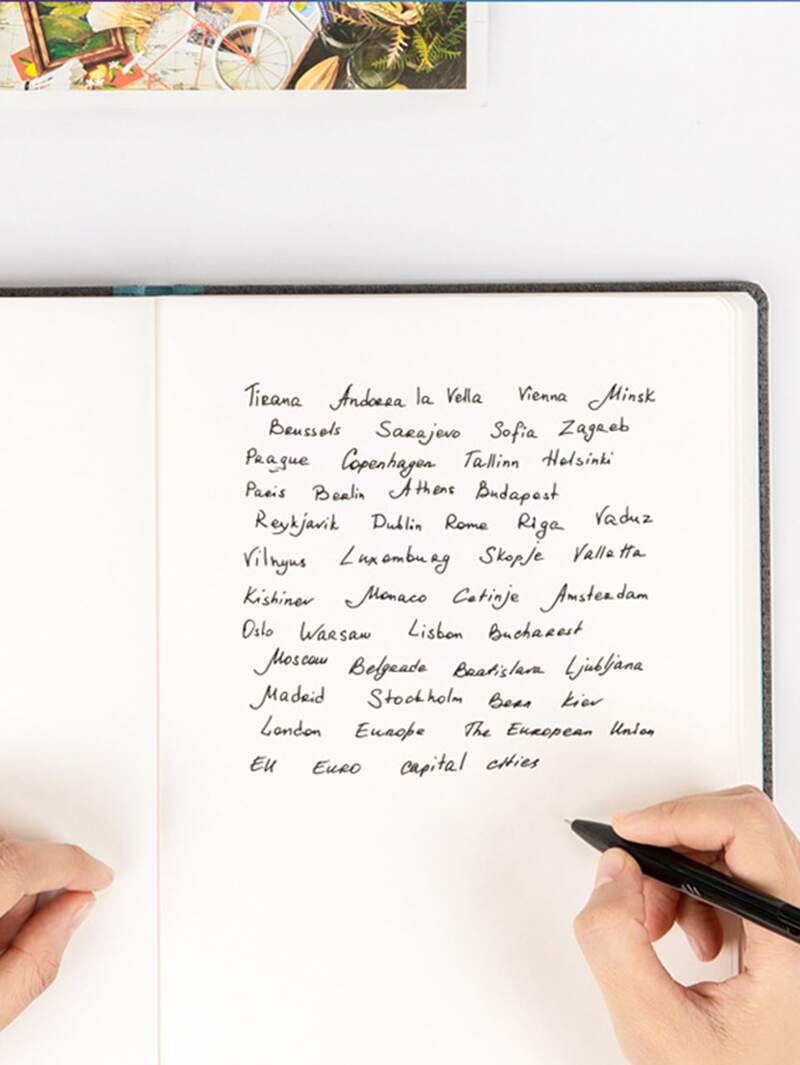 Tirana Andorra la Vella Vienna Minsk
Brussels Sarajevo Sofia Zagreb
Prague Copenhagen Tallinn Helsinki
Paris Berlin Athens Budapest
Reykjavik Dublin Rome Riga Vaduz
Vilnyus Luxemburg Skopje Valletta
Kishinev Monaco Cetinje Amsterdam
Oslo Warsaw Lisbon Bucharest
Moscow Belgrade Bratislava Ljubljana
Madrid Stockholm Bern Kiev
London Europe The European Union
EU Euro capital cities